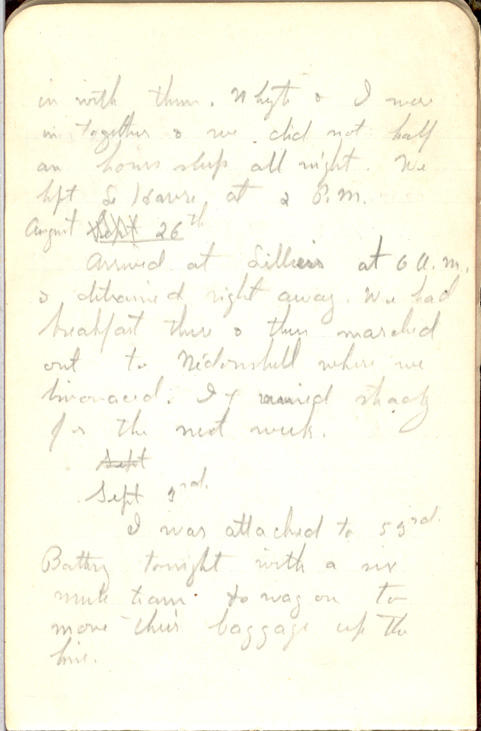 in with them. Whyte & I were
in together & we did not half
an hours sleep all night. We
left Le Havre at 2 P.M.
August Sept 26th
Arrived at Lilliers at 6 A.M.
& detrained right away. We had
breakfast there & then marched
out to Nédonshell where we
bivouaced. It rained steady
for the next week.
Sept
Sept 3rd.
I was attached to 53rd
Battery tonight with a six
mule team & wagon to
move their baggage up the
line.